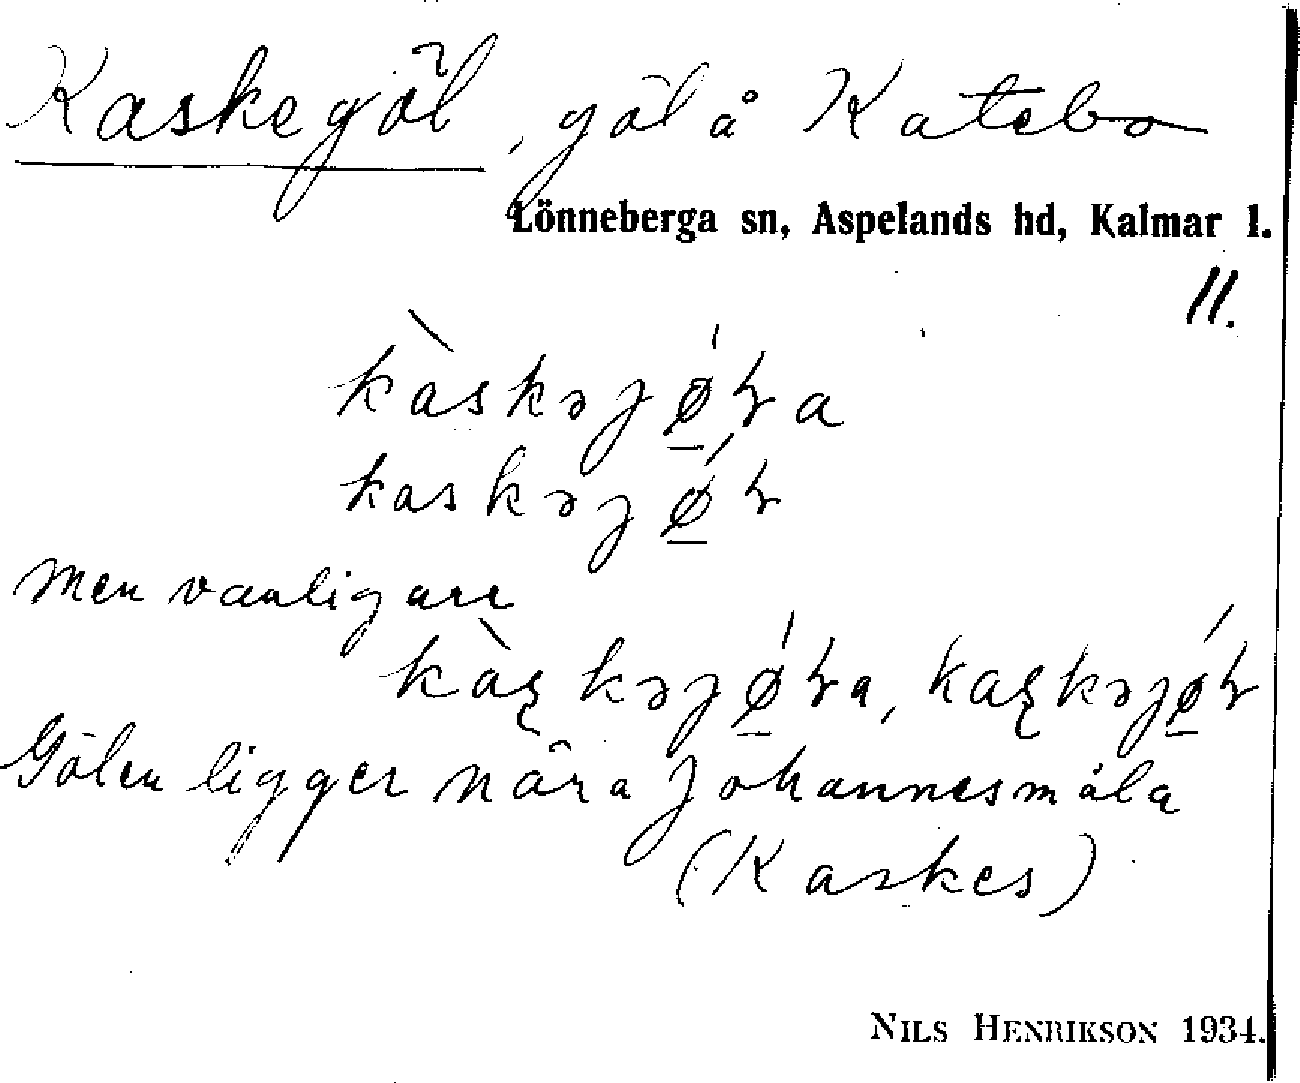 Kaskegöl, göl å Katebo
Lönneberga sn, Aspelands hd, Kalmar l.
II.
kàskəjǿ̲ɬa
kaskəjǿ̲ɬ
men vanligare
kàʂkəjǿ̲ɬa, kaʂkəjǿ̲ɬ
Gölen ligger nära Johannesmåla
(Kaskes)
NILS HENRIKSON 1934.